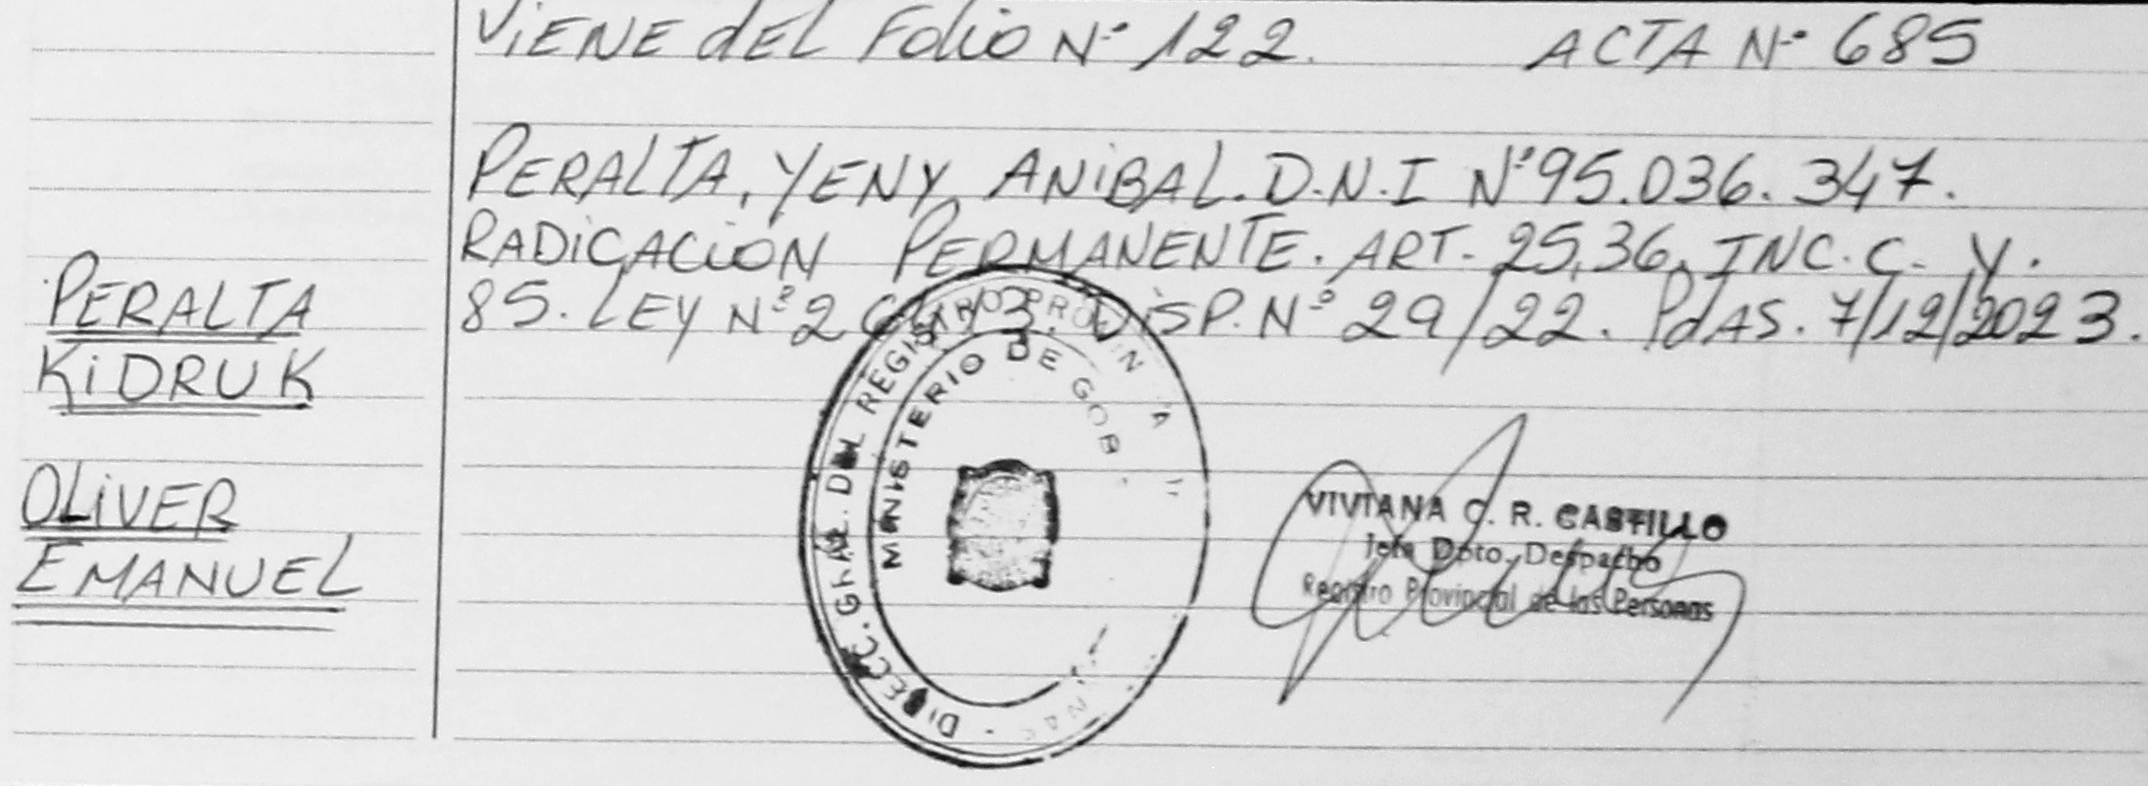 ViENE dEL Folio N° 122. ACTA N° 685
PERALTA, YENY ANiBAL. D.N.I N°95.036.347.
RADiCACiON PERMANENTE. ART. 25,36, INC. C. Y.
85. LEY N° DiSP. N° 29/22. PdAS. 7/12/2023.
PERALTA
KiDRUK
OLiVER
EMANUEL
DIRECC. GRAL. DEL REGISTRO PROVINCIAL
MINISTERIO DE GOB
VIVIANA C. R. CASTILLO
Jefa Dpto. Despacho
Registro Provincial de las Personas